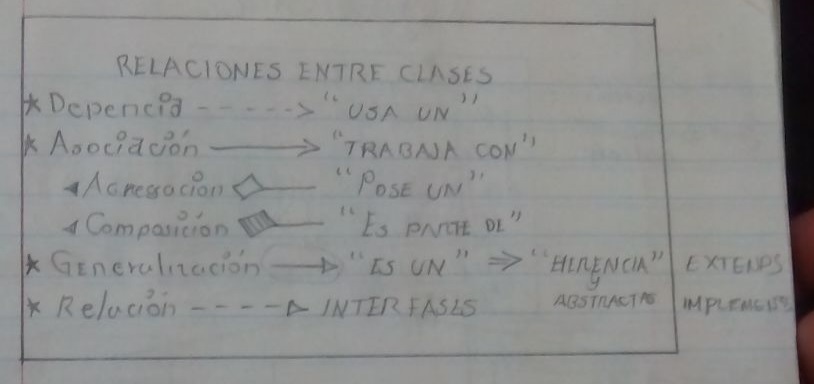 RELACIONES ENTRE CLASES
* Depencia -----> "USA UN"
* Asociación ——> "TRABAJA CON"
Agregacion ◇— "POSE UN"
Composición — "ES PARTE DE"
* Generalización —▷ "ES UN" => "HERENCIA" EXTENDS
y
ABSTRACTAS IMPLEMENTS
* Relación ----▷ INTERFASES